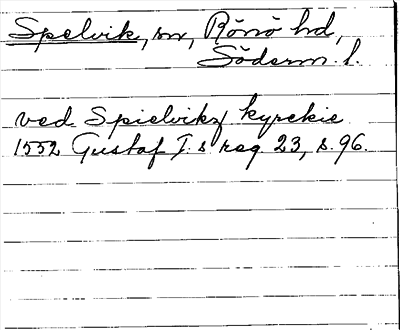 Spelvik, sn, Rönö hd,
Söderm. l.
ved Spielvikz kyrckie
1552 Gustaf I:s reg 23, s. 96.